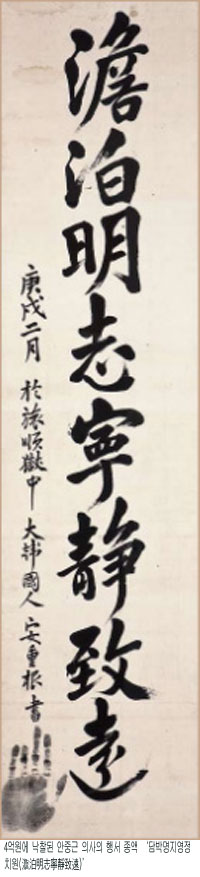 澹泊明志寧静致遠
庚戌二月 於旅順獄中 大韓國人 安重根 書
4억원에 낙찰된 안중근 의사의 행서 중액 '담박명지영정
치원(澹泊明志寧靜致遠)'